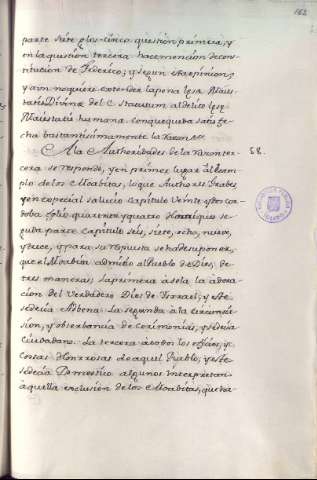 162
parte siete glos. cinco question primera, y
en la question tercera hace mencion de cons
titucion de Federico; y segun esta opinion,
y aun no quiere extender la pena lesa Maies
tatis Divinæ del C Statutum al delito lesæ
Maiestatis humanæ con que queda satisfe
cha bastantisimamente la razon
A las Authoridades de la razon ter 58.
cera se responde, y en primer lugar al Exem
plo de los Moabitas, lo que Authores graves
y en especial
capitulo veinte
folio quarenta y quatro
parte capitulo seis, siete, ocho, nueve,
y trece, y para su respuesta se ha de suponer,
que el Moabita admitido al Pueblo de Dios, de
tres maneras; la primera à sola la adora
cion del verdadero Dios de Ysrrael; y este
se decia Advena. La segunda à la circumcis
sion, y observancia de ceremonias, y se decia
Ciudadano. La tercera à todos los oficios, y
cosas Honrrosas de aquel Pueblo; y este
se decia Domestico algunos interpretan
aquella exclusion de los Moabitas, que da